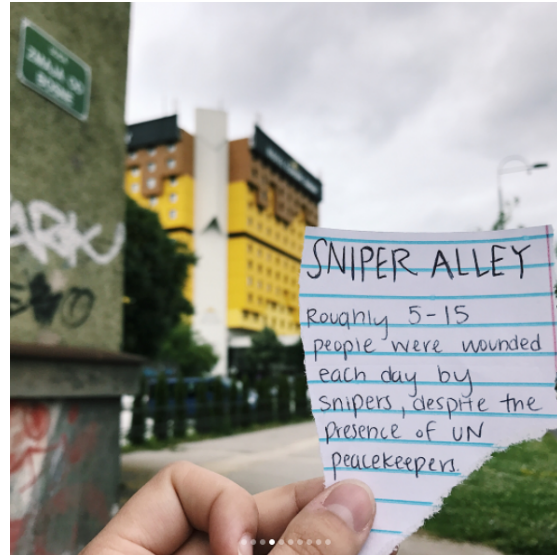 ZMAJA OD
BOSNE
SNIPER ALLEY
Roughly 5-15
people were wounded
each day by
snipers, despite the
presence of UN
peacekeepers.